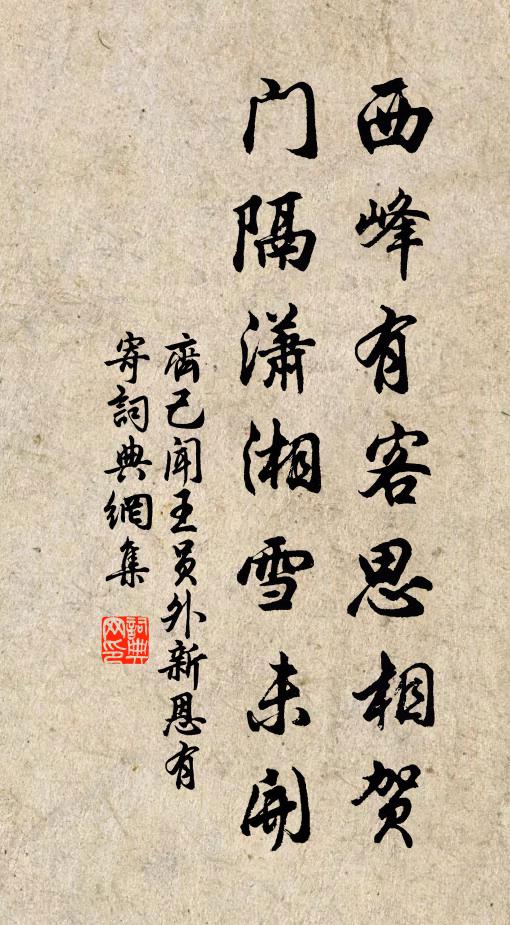 西峰有客思相贺
门隔潇湘雪未开
齊己闻王员外新恩有
寄詞典網集
詞典
网印